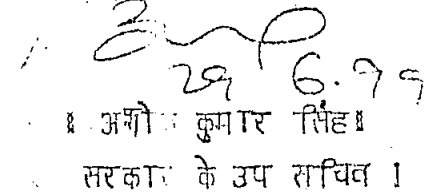 29 6.99
॥ अशो कुमार सिंह॥
सरकार के उप सचिव ।